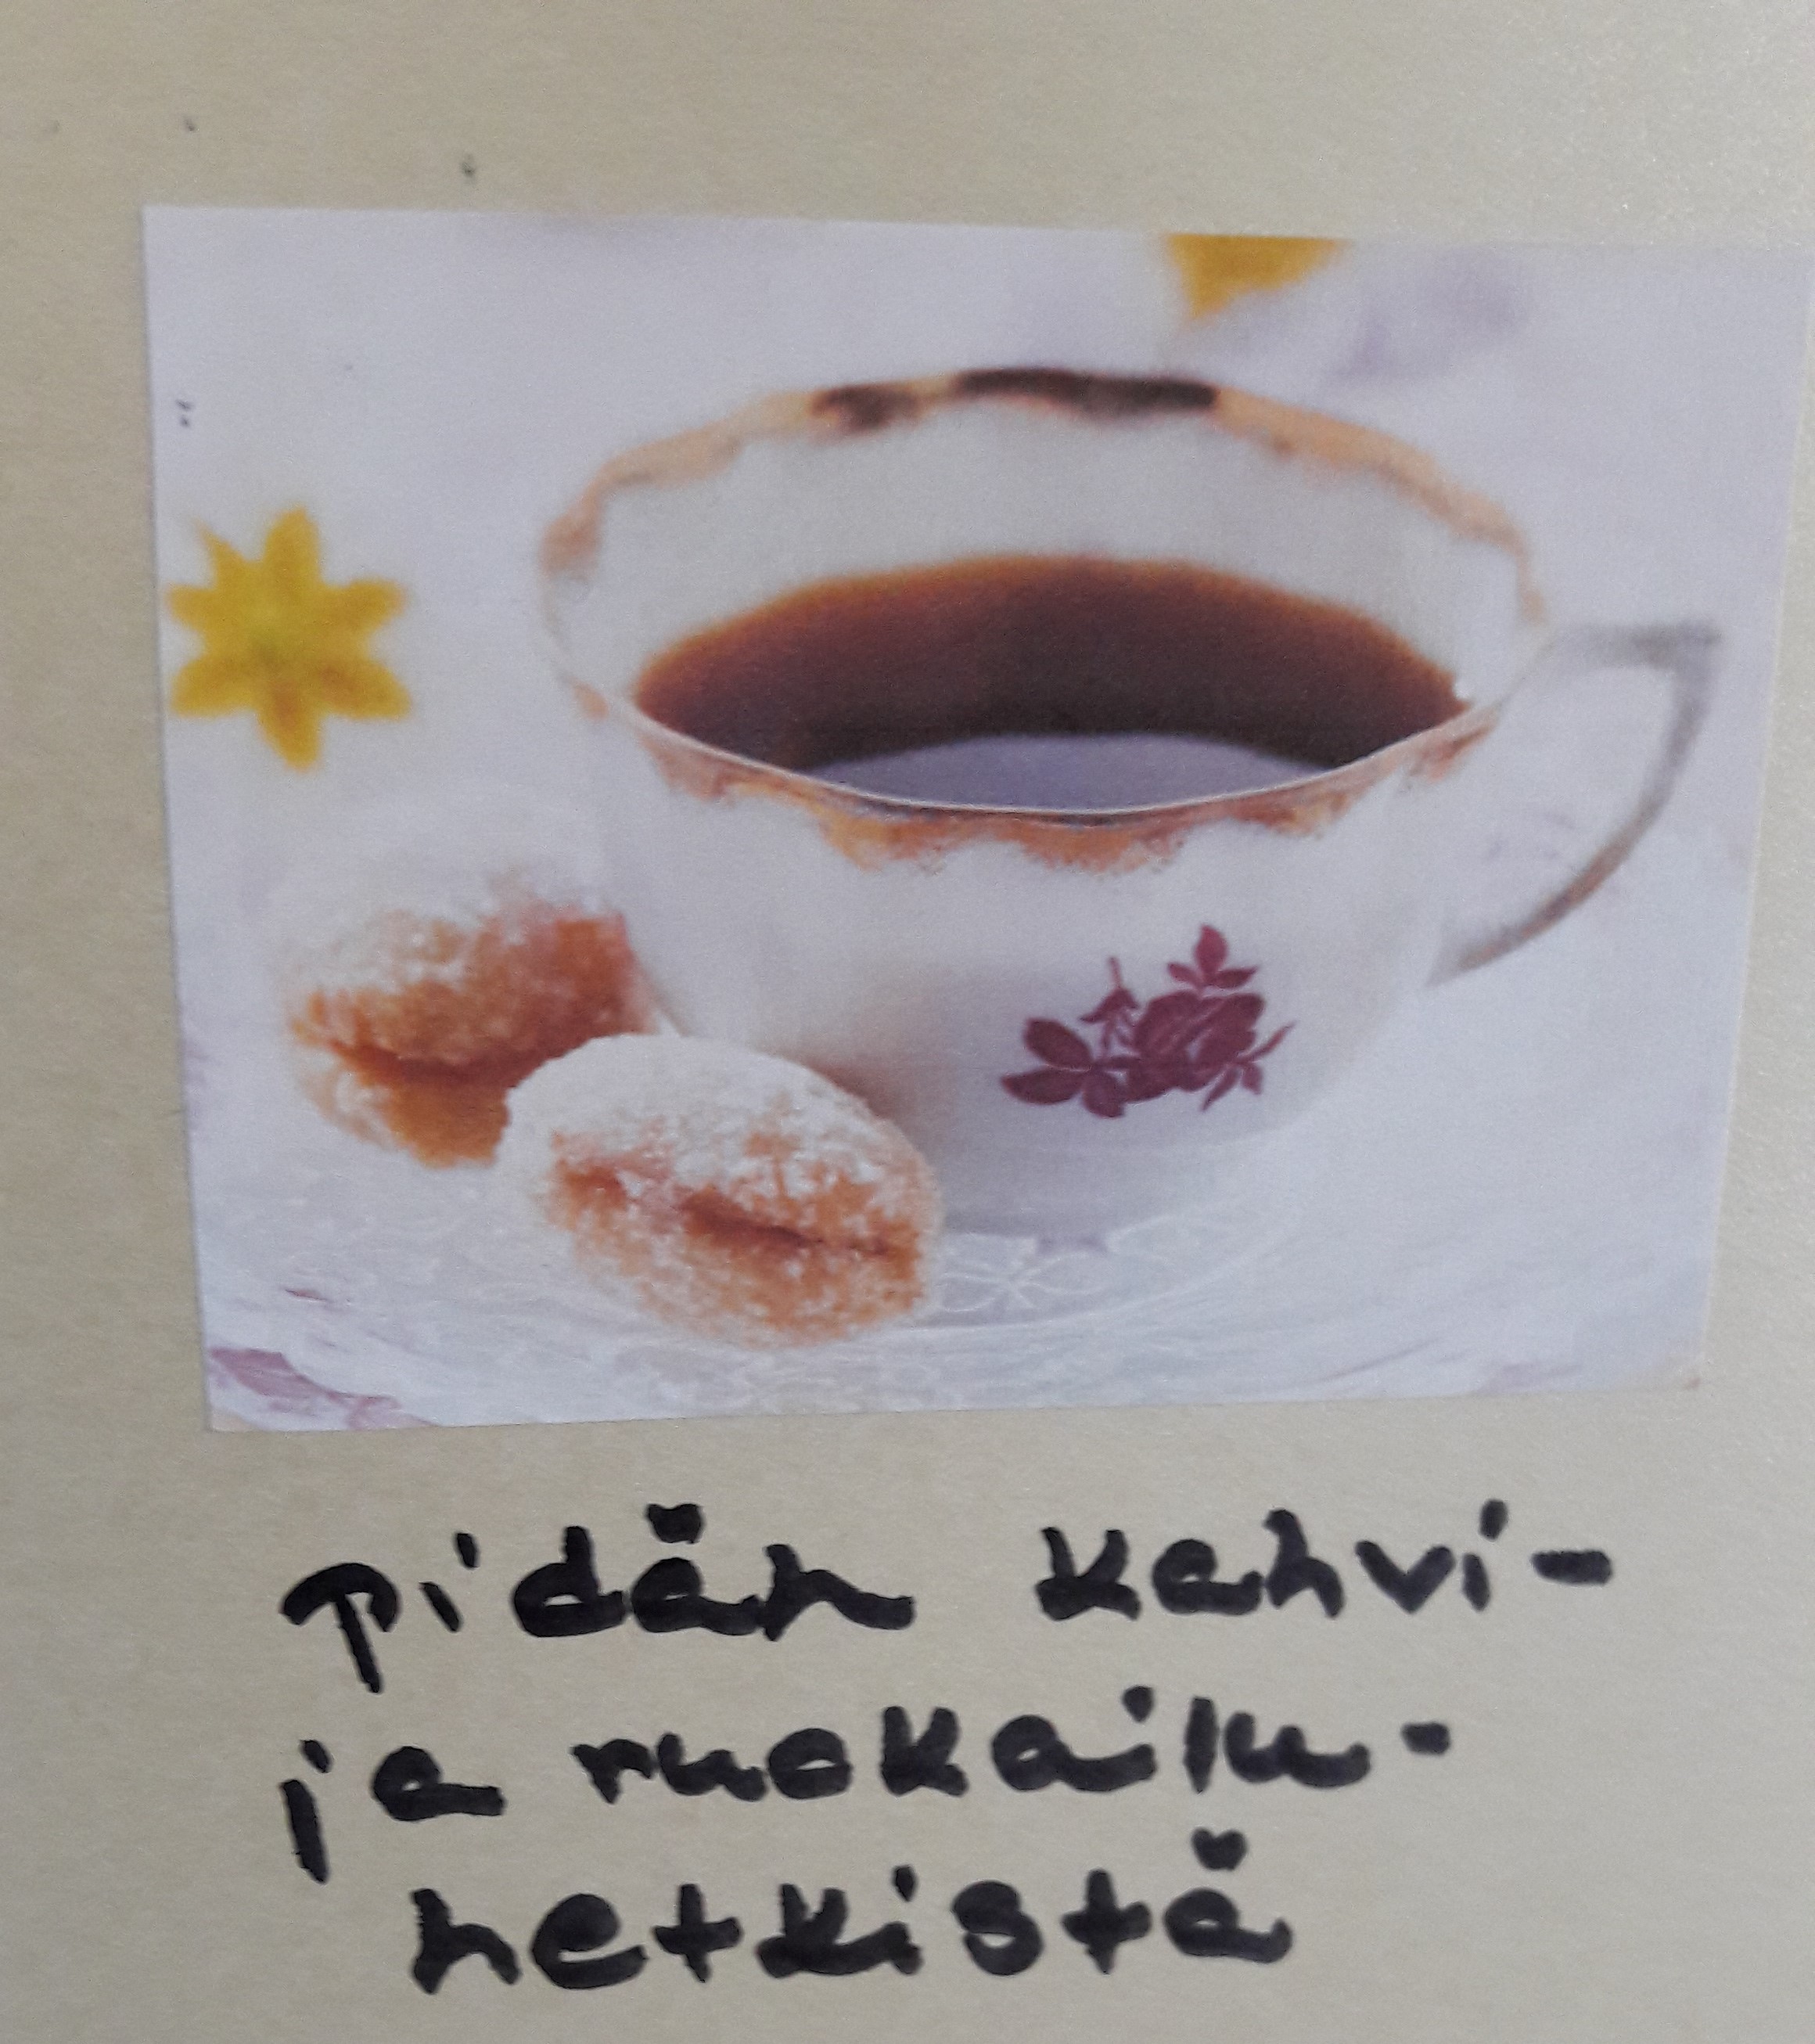 pidän kahvi-
ja ruokailu-
hetkistä